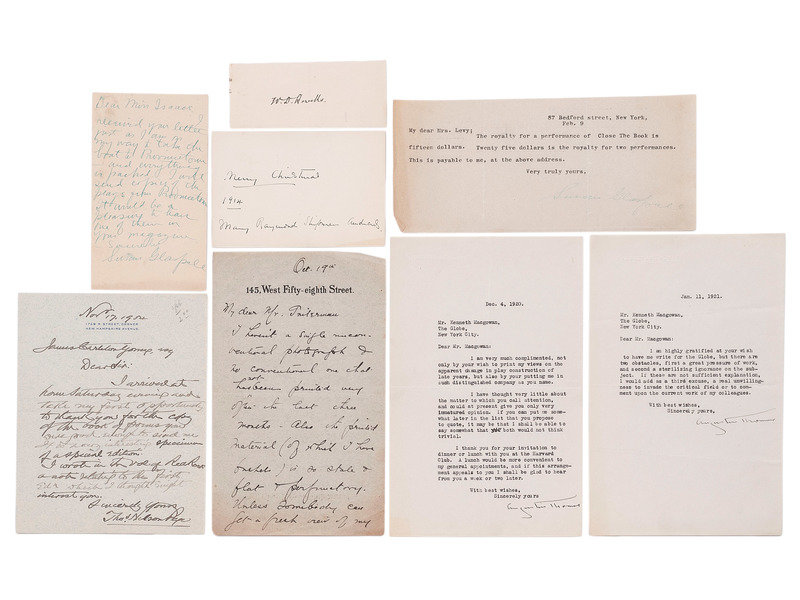 Dear Miss Isaacs, I
received your letter
just as I am
my way to take the
boat to Provincetown
and everything
is packed. I will
send copies of the
plays when
It would be a
pleasure to have
one of them in
your magazine
Sincerely
Susan Glaspell
W. D. Howells
Merry Christmas
1914
Mary Raymond Shipman Andrews
87 Bedford street, New York,
Feb. 9
My dear Mrs. Levy;
The royalty for a performance of Close The Book is
fifteen dollars. Twenty five dollars is the royalty for two performances.
This is payable to me, at the above address.
Very truly yours,
Susan Glaspell
Nov 17, 1904
1724 N STREET, CORNER
NEW HAMPSHIRE AVENUE.
James Carleton Young, esq
Dear Sir:
I arrived at
home Saturday evening and
take my first opportunity
to thank you for the copy
of the book of poems just
specimen
of a special edition.
I wrote in the vol. of
a note relating to the first
which I thought might
interest you.
Sincerely yours
Thos Nelson Page
Oct. 19th
145, West Fifty-eighth Street.
My dear Mr.
I haven't a single uncon-
ventional photograph &
no conventional one that
has not been printed very
in the last three
months. Also the printed
material (of what I have
) is so stale &
flat & perfunctory.
Unless somebody can
get a fresh view of my
Dec. 4, 1920.
Mr. Kenneth Macgowan,
The Globe,
New York City.
Dear Mr. Macgowan:
I am very much complimented, not
only by your wish to print my views on the
apparent change in play construction of
late years, but also by your putting me in
such distinguished company as you name.
I have thought very little about
the matter to which you call attention,
and could at present give you only very
immatured opinion. If you can put me some-
what later in the list that you propose
to quote, it may be that I shall be able to
say somewhat that you both would not think
trivial.
I thank you for your invitation to
dinner or lunch with you at the Harvard
Club. A lunch would be more convenient to
my general appointments, and if this arrange-
ment appeals to you I shall be glad to hear
from you a week or two later.
With best wishes,
Sincerely yours
Augustus Thomas
Jan. 11, 1921.
Mr. Kenneth Macgowan,
The Globe,
New York City.
Dear Mr. Macgowan:
I am highly gratified at your wish
to have me write for the Globe, but there are
two obstacles, first a great pressure of work,
and second a sterilizing ignorance on the sub-
ject. If these are not sufficient explanation,
I would add as a third excuse, a real unwilling-
ness to invade the critical field or to com-
ment upon the current work of my colleagues.
With best wishes,
Sincerely yours,
Augustus Thomas